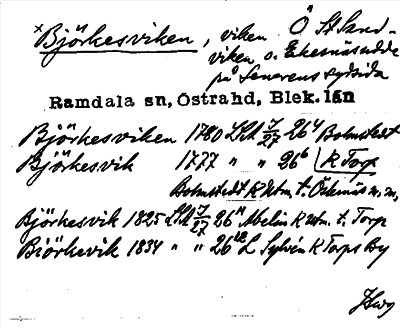 ×Björkesviken, viken Ö St Sand-
viken o. Ekenäsudde
på Senorens sydsida
Ramdala sn, Östrahd, Blek. län
Björkesviken 1780 LSA J/27 26⁴ Bolmstedt
Björkesvik 1777 " " 26⁶ K Torp
Bolmstedt K utm. t. Öskenäs m.m,
Björkesvik 1825 LSA J/27 26¹¹ Abelin K utm. t. Torp
Biörkevik 1834 " " 26¹² L Sylvén K Torps By